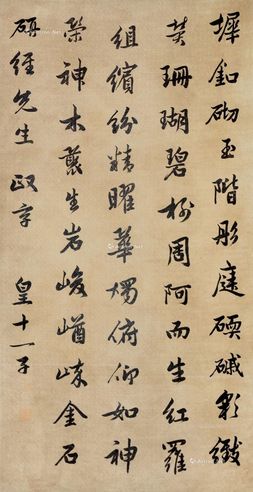 墀釦砌玉階彤庭碝磩彩緻
熒珊瑚碧樹周阿而生紅羅
組繽紛精曜華燭俯仰如神
榮神木叢生岩峻崷崪金石
研經先生 政字 皇十一子